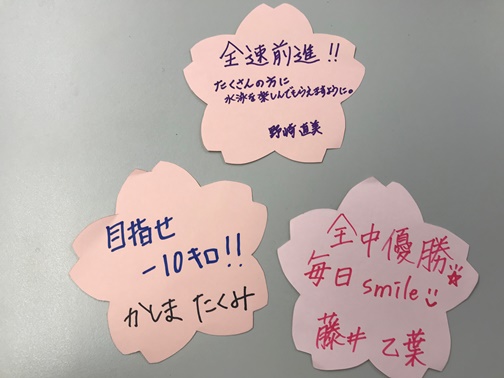 全速前進!!
たくさんの方に
水泳を楽しんでもらえますように。
野崎直美
目指せ
-10キロ!!
かしま たくみ
全中優勝
毎日 smile
藤井 乙葉